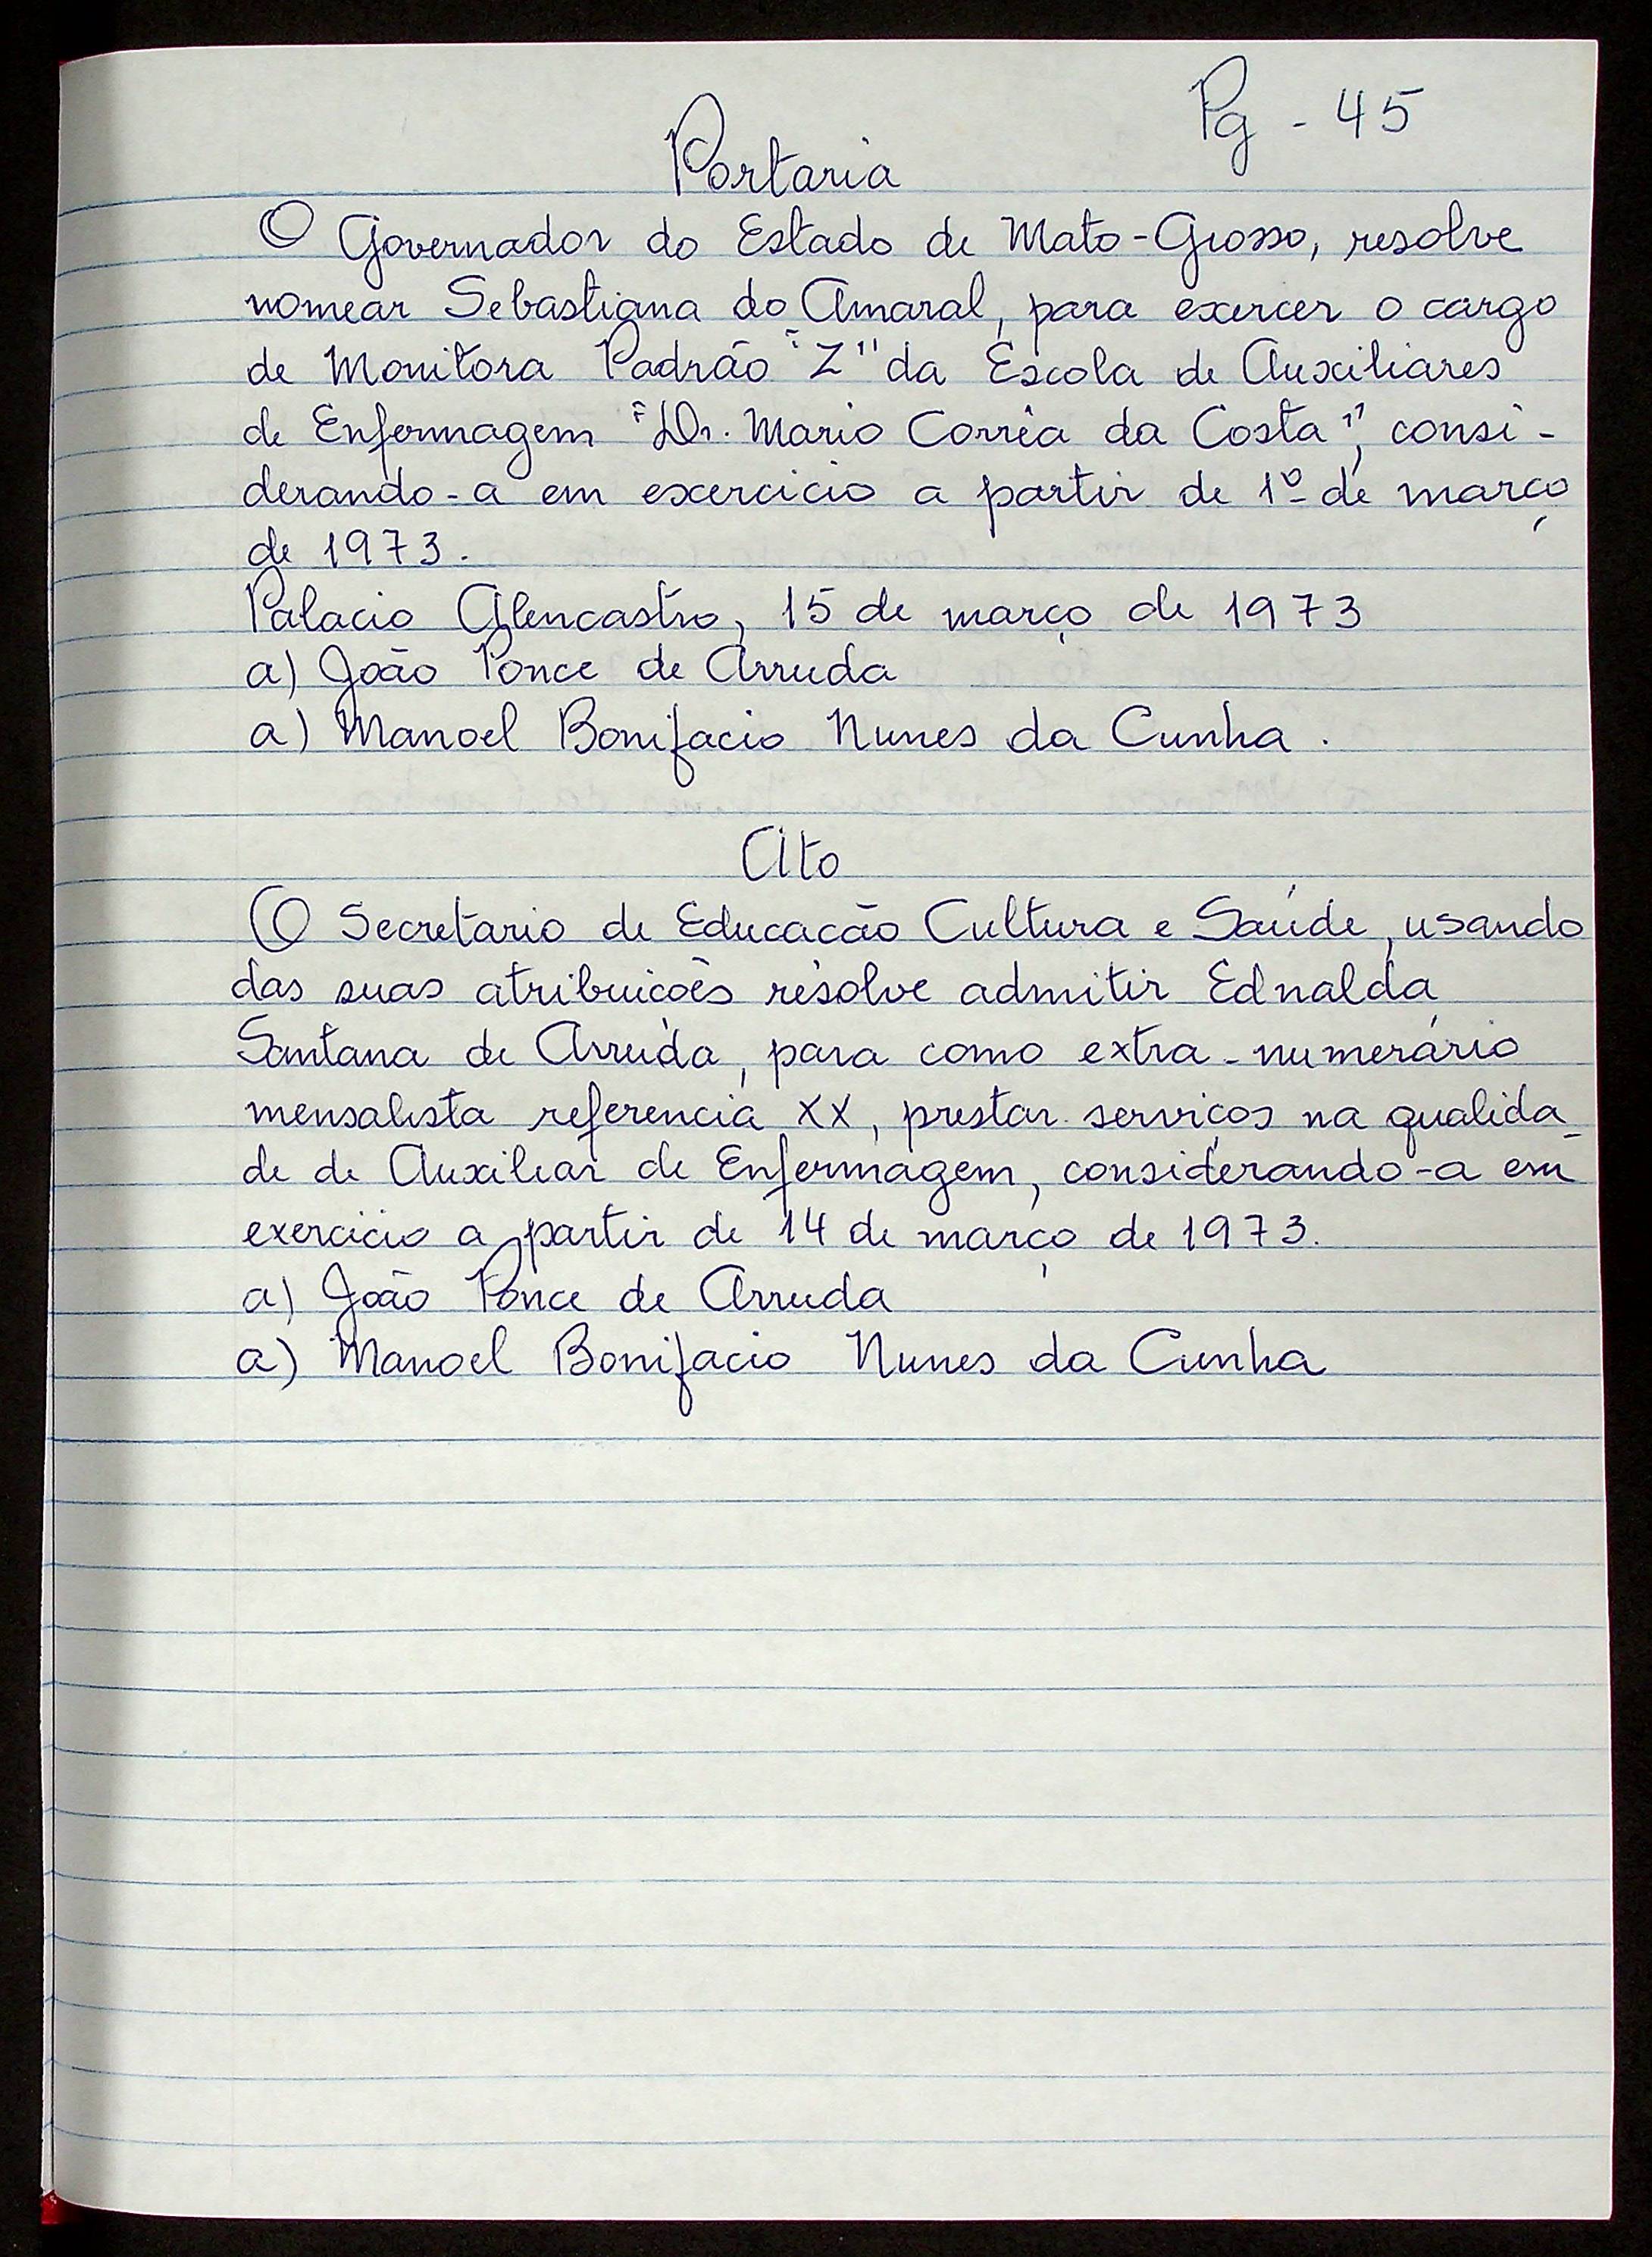 Pg - 45
Portaria
O Governador do Estado de Mato-Grosso, resolve
nomear Sebastiana do Amaral, para exercer o cargo
de Monitora Padrão "Z" da Escola de Auxiliares
de Enfermagem "Dr. Mario Corrêa da Costa", consi-
derando-a em exercicio a partir de 1º de março
de 1973.
Palacio Alencastro, 15 de março de 1973
a) João Ponce de Arruda
a) Manoel Bonifacio Nunes da Cunha.
Ato
O Secretario de Educacão Cultura e Saúde, usando
das suas atribuicões resolve admitir Ednalda
Santana de Arruda, para como extra-numerário
mensalista referencia XX, prestar serviços na qualida-
de de Auxiliar de Enfermagem, considerando-a em
exercicio a partir de 14 de março de 1973.
a) João Ponce de Arruda
a) Manoel Bonifacio Nunes da Cunha